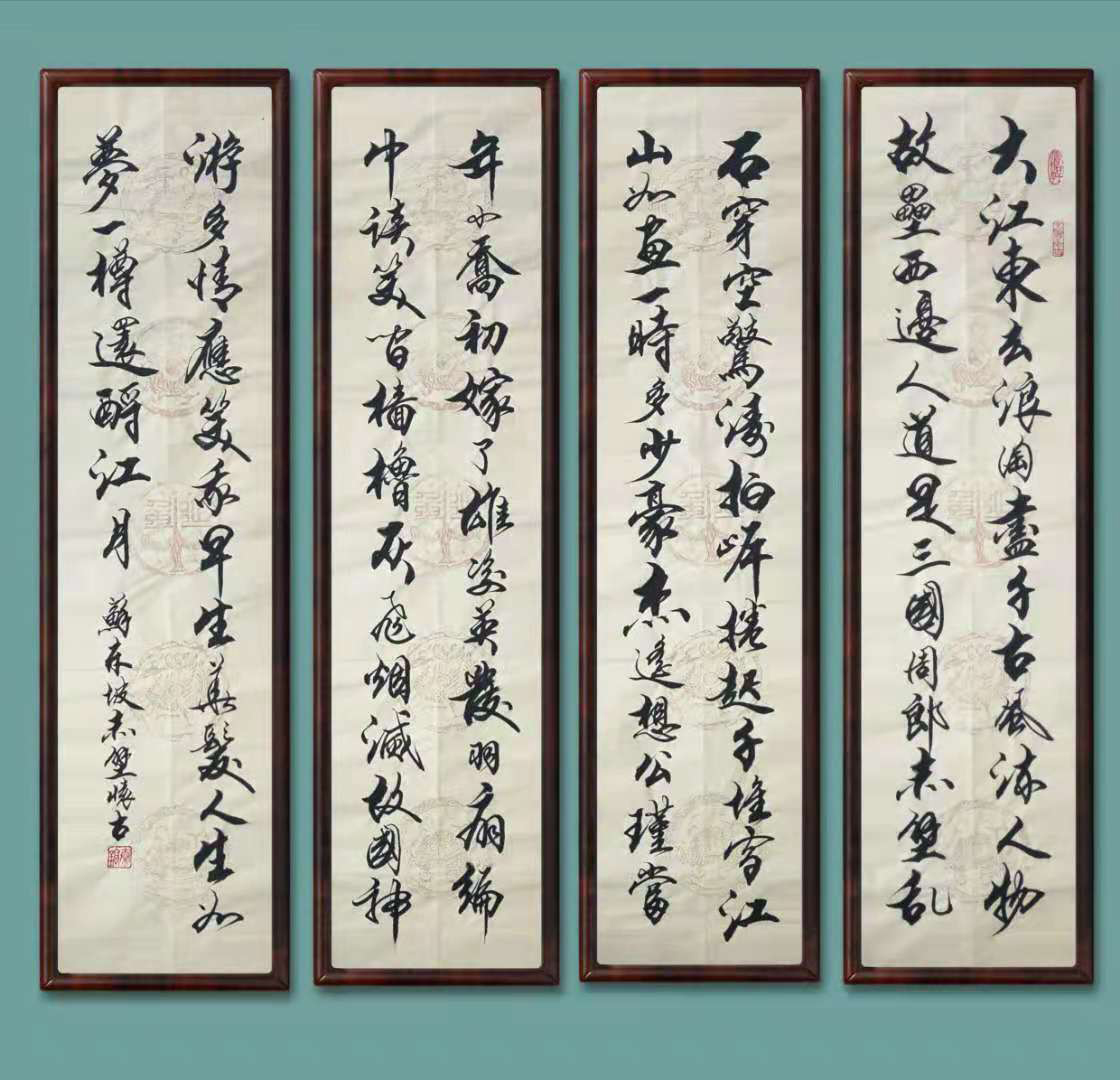 大江東去浪淘盡千古風流人物
故壘西邊人道是三國周郎赤壁乱
石穿空驚濤拍岸捲起千堆雪江
山如畫一時多少豪杰遥想公瑾當
年小喬初嫁了雄姿英發羽扇綸
巾談笑間檣櫓灰飛烟滅故國神
游多情應笑我早生華髮人生如
夢一樽還酹江月
蘇东坡赤壁懷古